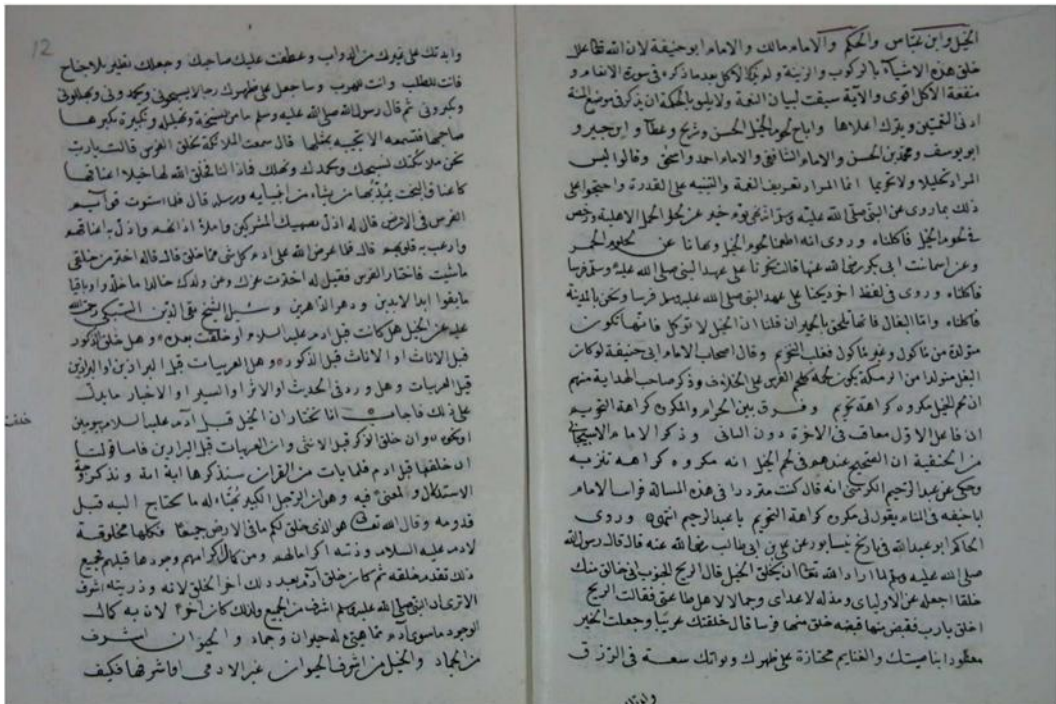 الخيل وابن عباس والحكم والامام مالك والامام ابو حنيفة لان الله تعالى علل
خلق هذه الاشياء بالركوب والزينة ولم يذكر الاكل بعد ما ذكره في سورة الانعام و
منفعة الاكل اقوى والآية سيقت لبيان النعمة ولا يليق بالحكمة ان يذكر في موضع المنة
ادنى النعمتين ويترك اعلاها واباح لحوم الخيل الحسن وشريح وعطا وابن جبير و
ابو يوسف ومحمد بن الحسن والامام الشافعي والامام احمد واسحق وقالوا ليس
المراد تحليلا ولا تحريما انما المراد تعريف النعمة والتنبيه على القدرة واحتجوا على
ذلك بما روى عن النبي صلى الله عليه وسلم انه نهى يوم خيبر عن لحوم الحمر الاهلية ورخص
في لحوم الخيل فاكلناه وروى انه اطعمنا لحوم الخيل ونهانا عن لحوم الحمر
وعن اسما بنت ابي بكر رضي الله عنها قالت نحرنا على عهد النبي صلى الله عليه وسلم فرسا
فاكلناه وروى في لفظ اخر ذبحنا على عهد النبي صلى الله عليه وسلم فرسا ونحن بالمدينة
فاكلناه واما البغال فانها تلحق بالحمير ان قلنا ان الخيل لا توكل فانها تكون
متولدة من ماكول وغير ماكول فغلب التحريم وقال اصحاب الامام ابي حنيفة لو كان
البغل متولدا من الرمكة يكون لحمه كلحم الفرس على الخلاف وذكر صاحب الهداية منهم
ان لحم الخيل مكروه كراهة تحريم وفرق بين الحرام والمكروه كراهة التحريم
ان فاعل الاول معاقب في الاخرة دون الثاني وذكر الامام الاسبيجابي
من الحنفية ان الصحيح عندهم في لحم الخيل انه مكروه كراهة تنزيه
وحكى عن عبد الرحيم الكرميني انه قال كنت مترددا في هذه المسالة فراسا الامام
ابا حنيفه في المنام يقول لي مكروه كراهة التحريم يا عبد الرحيم انتهى وروى
الحاكم ابو عبد الله في تاريخ نيسابور عن علي بن ابي طالب رضي الله عنه قال قال رسول الله
صلى الله عليه وسلم لما اراد الله تعالى ان يخلق الخيل قال للريح الجنوب اني خالق منك
خلقا اجعله عز الاوليائي ومذلة لاعدائي وجمالا لاهل طاعتي فقالت الريح
اخلق يا رب فقبض منها قبضه فخلق منها فرسا قال خلقتك عربيا وجعلت الخير
معقودا بناصيتك والغنايم محتازة على ظهرك وبواتك سعة في الرزق
12
وايدتك على غيرك من الدواب وعطفت عليك صاحبك وجعلتك تطير بلا جناح
فانت للطلب وانت للهرب وساجعل على ظهرك رجالا يسبحوني ويحمدوني ويهللوني
ويكبروني ثم قال رسول الله صلى الله عليه وسلم ما من تسبيحة وتهليله وتكبيرة يكبرها
صاحبها فتسمعه الا تجيبه بمثلها قال سمعت الملائكة بخلق الفرس قالت يا رب
نحن ملائكتك نسبحك ونحمدك ونهلك فماذا لنا فخلق الله لها خيلا اعناقها
كاعناق البخت يمد بها من يشاء من انبيايه ورسله قال فلما استوت قوايم
الفرس في الارض قال له اذل بصهيلك المشركين واملأ اذانهم واذل به اعناقهم
وارعب به قلوبهم قال فلما عرض الله على ادم كل شي مما خلق قال له اختر من خلقي
ما شيت فاختار الفرس فقيل له اخترت عزك وعز ولدك خالدا ما خلدوا وباقيا
ما بقوا ابد الابدين ودهر الداهرين وسئل الشيخ تقي الدين السبكي رحمة الله
عليه عن الخيل هل كانت قبل ادم عليه السلام او خلقت بعده وهل خلق الذكور
قبل الاناث او الاناث قبل الذكور وهل العربيات قبل البراذين او البراذين
قبل العربيات وهل ورد في الحديث او الاثر او السير او الاخبار ما يدل
على ذلك فاجاب انا نختار ان الخيل قبل آدم عليه السلام بيومين
او نحوه وان خلق الذكر قبل الانثى وان العربيات قبل البراذين فاما قولنا
ان خلقها قبل ادم فلايات من القران سنذكرها اية اية ونذكر وجه
الاستدلال والمعنى فيه وهو ان الرجل الكبير تهيأ له ما يحتاج اليه قبل
قدومه وقال الله تعالى هو الذي خلق لكم ما في الارض جميعا فكلها مخلوقة
لادم عليه السلام وذريته اكراما لهم ومن كمال اكرامهم وجودها قبلهم فجميع
ذلك تقدم خلقه ثم كان خلق آدم بعد ذلك آخر الخلق لانه وذريته اشرف
الا ترى ان النبي صلى الله عليه وسلم اشرف من الجميع ولذلك كان آخرا لان به كمال
الوجود ما سوى آدم مما هيئ له حيوان وجماد والحيوان اشرف
من الجماد والخيل من اشرف الحيوان غير الادمي او اشرفها فكيف
خلقت